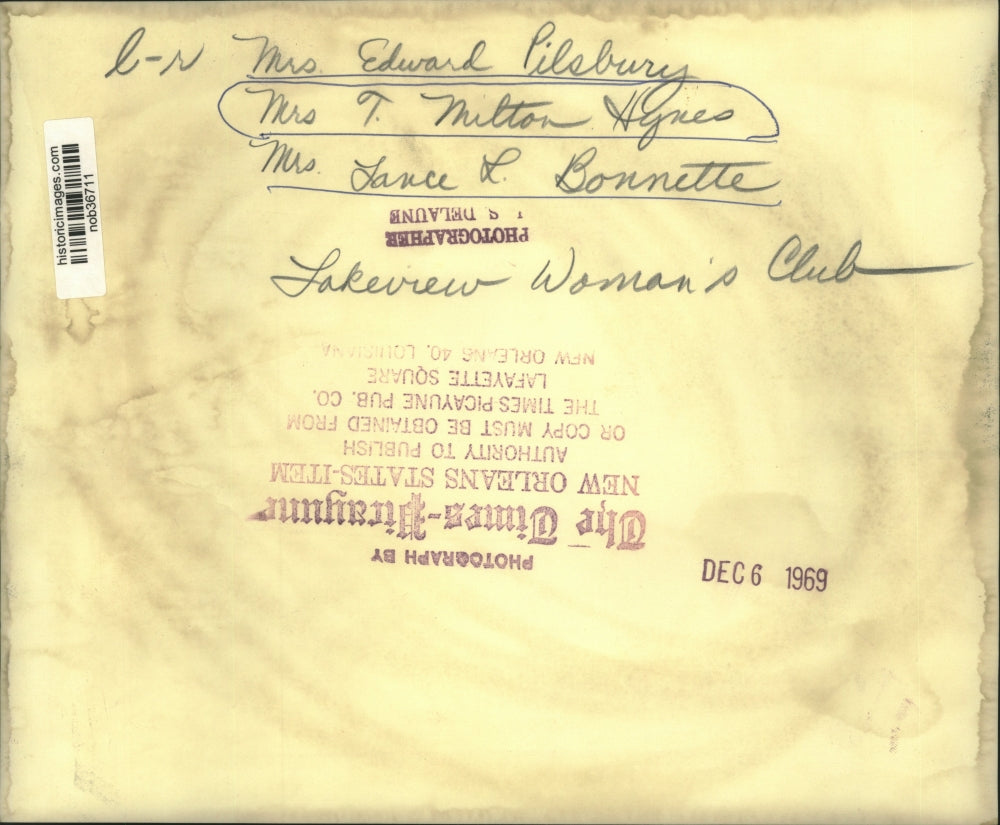 l-r Mrs. Edward Pilsbury
Mrs T. Milton Hynes
Mrs. Lance L. Bonnette
historicimages.com
nob36711
PHOTOGRAPHER
S. DELAUNE
Lakeview Woman's Club
PHOTOGRAPH BY
The Times-Picayune
NEW ORLEANS STATES-ITEM
AUTHORITY TO PUBLISH
OR COPY MUST BE OBTAINED FROM
THE TIMES PICAYUNE PUB. CO.
LAFAYETTE SQUARE
NEW ORLEANS 40, LOUISIANA
DEC 6 1969